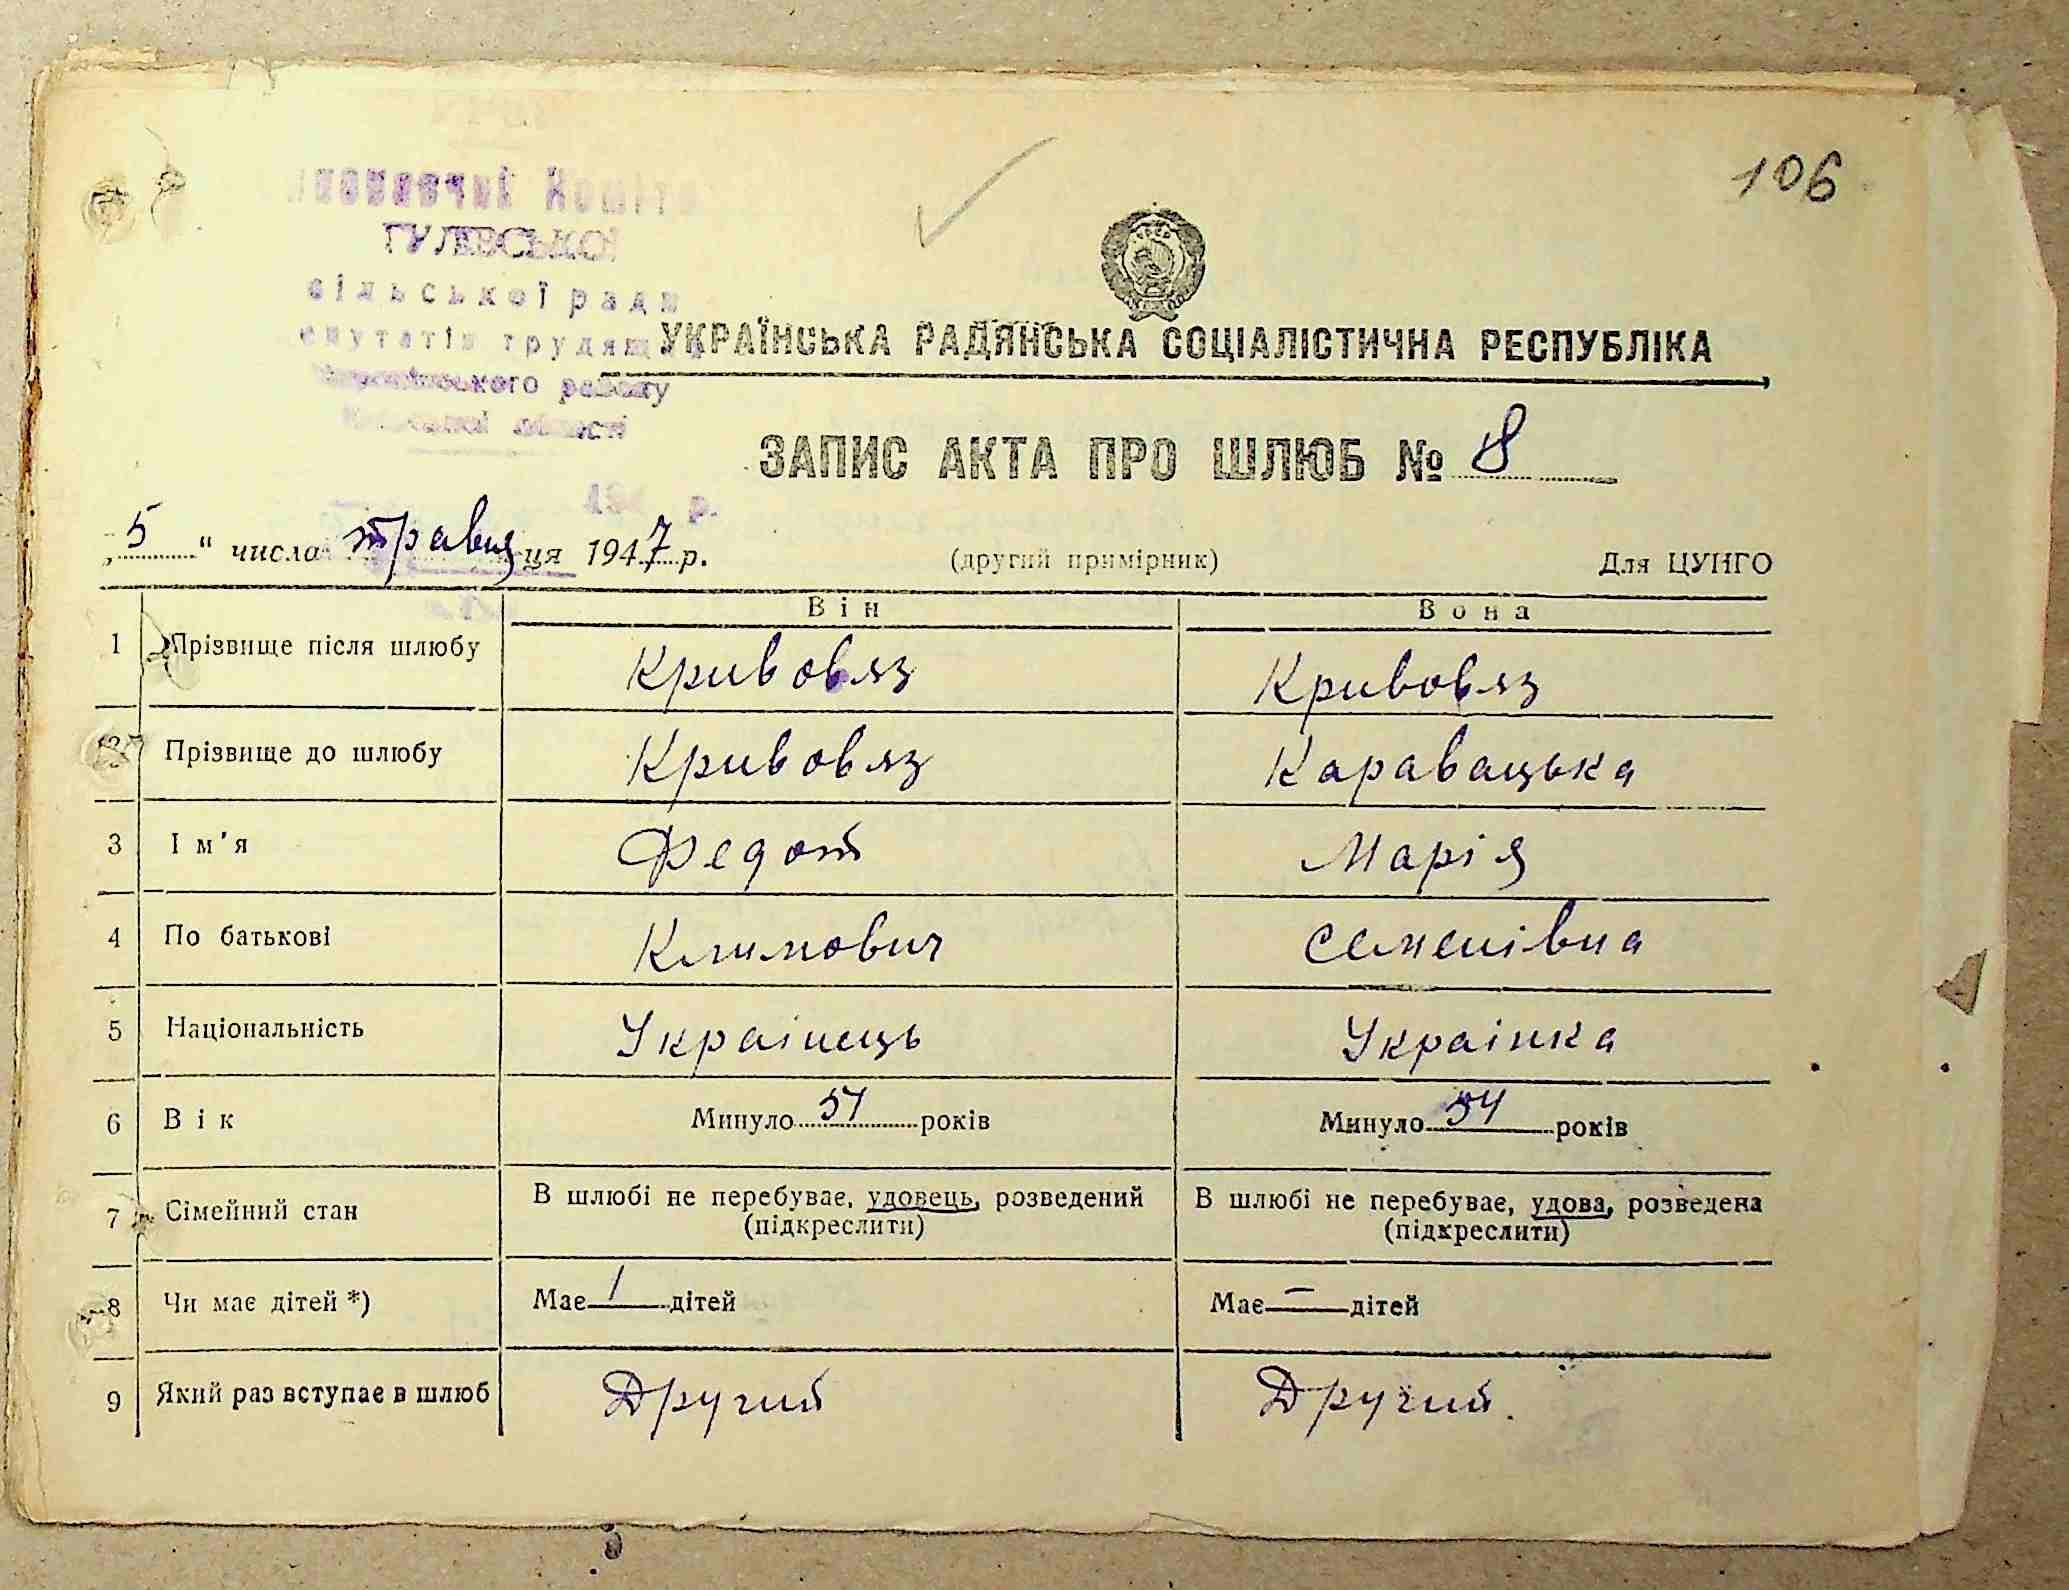 106
ГУЛЕВСЬКОЇ
сільської ради
району
області
УКРАЇНСЬКА РАДЯНСЬКА СОЦІАЛІСТИЧНА РЕСПУБЛІКА
ЗАПИС АКТА ПРО ШЛЮБ № 8
„5“ числа травня ця 1947 р. (другий примірник) Для ЦУНГО
Він Вона
1 Прізвище після шлюбу Кривовяз Кривовяз
2 Прізвище до шлюбу Кривовяз Каравацька
3 Ім'я Федот Марія
4 По батькові Климович Семенівна
5 Національність Украінець Украінка
6 Вік Минуло 51 років Минуло 54 років
7 Сімейний стан В шлюбі не перебуває, удовець, розведений В шлюбі не перебуває, удова, розведена
(підкреслити) (підкреслити)
8 Чи має дітей *) Має 1 дітей Має — дітей
9 Який раз вступає в шлюб Другий Другий.